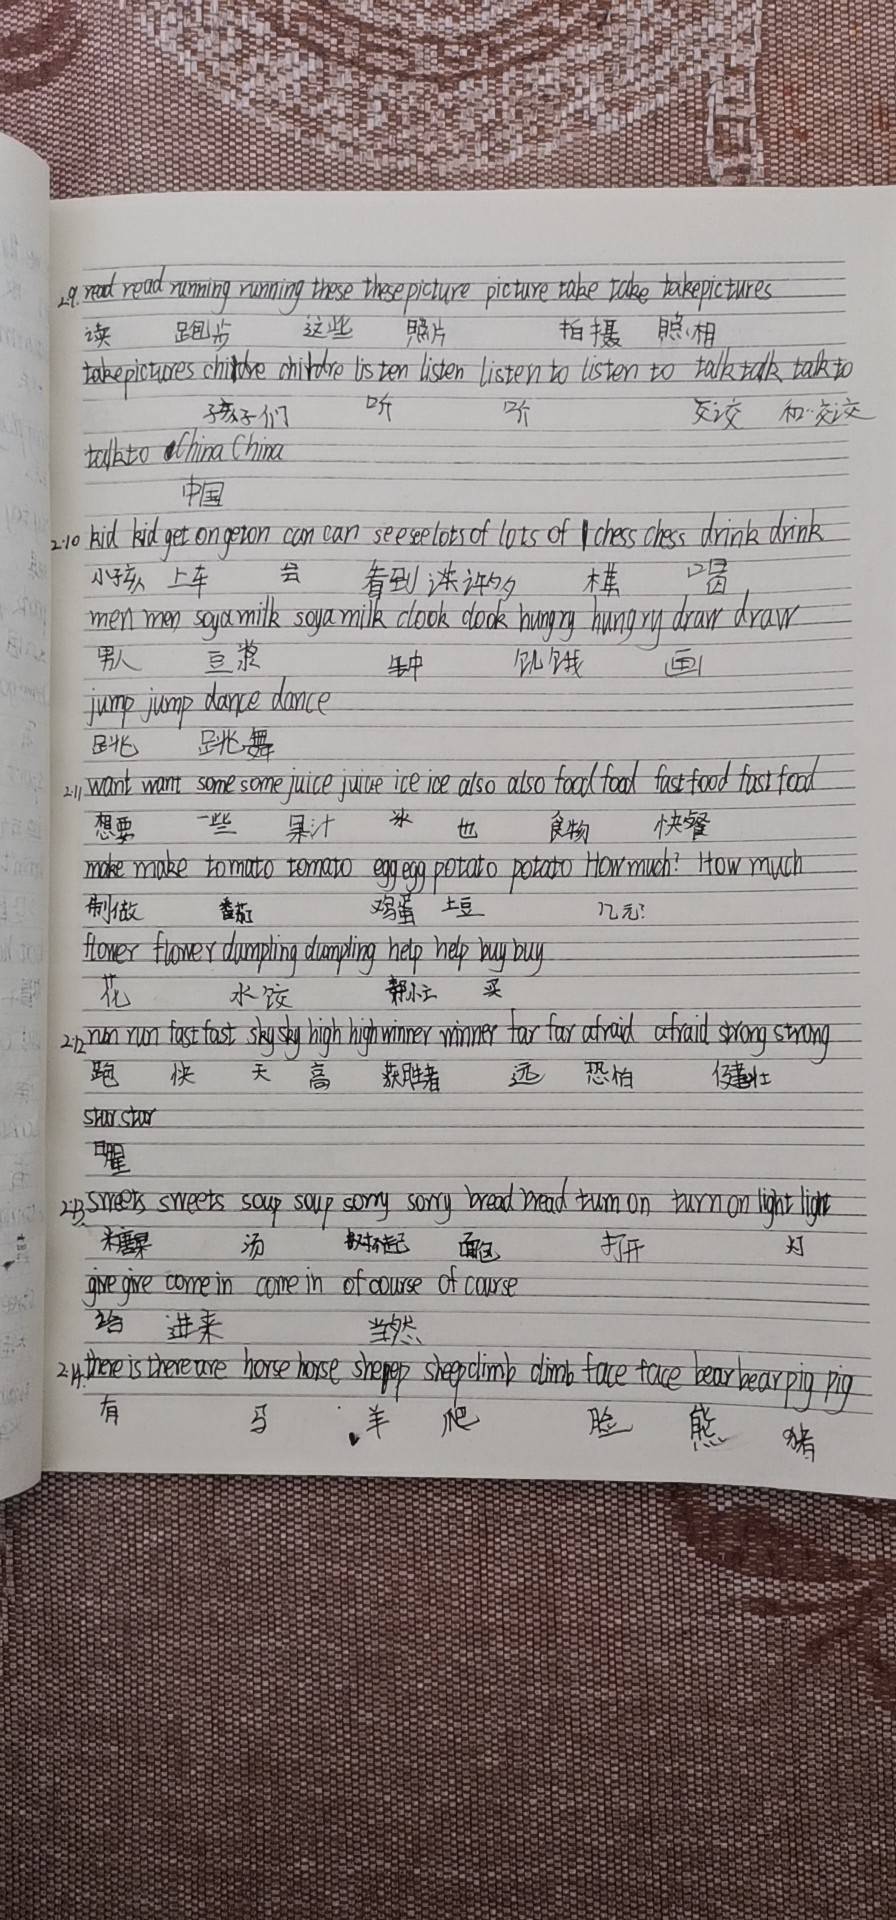 2.9. read read running running these these picture picture take take takepictures
读 跑步 这些 照片 拍摄 照相
takepictures childre childre listen listen listen to listen to talk talk talk to
孩子们 听 听 交谈 和…交谈
talk to China China
中国
2.10 kid kid get on get on can can see see lots of lots of chess chess drink drink
小孩 上车 会 看到 许多 棋 喝
men men soyamilk soyamilk clook clook hungry hungry draw draw
男人 豆浆 钟 饥饿 画
jump jump dance dance
跳 跳舞
2.11 want want some some juice juice ice ice also also food food fast food fast food
想要 一些 果汁 冰 也 食物 快餐
make make tomato tomato egg egg potato potato How much? How much
制做 番茄 鸡蛋 土豆 几元?
flower flower dumpling dumpling help help buy buy
花 水饺 帮助 买
2.12 run run fast fast sky sky high high winner winner far far afraid afraid strong strong
跑 快 天 高 获胜者 远 恐怕 健壮
star star
2.13. sweets sweets soup soup sorry sorry bread bread turn on turn on light light
糖果 汤 对不起 面包 打开 灯
give give come in come in of course of course
给 进来 当然
2.14. there is there are horse horse sheep sheep climb climb face face bear bear pig pig
有 马 羊 爬 脸 熊 猪